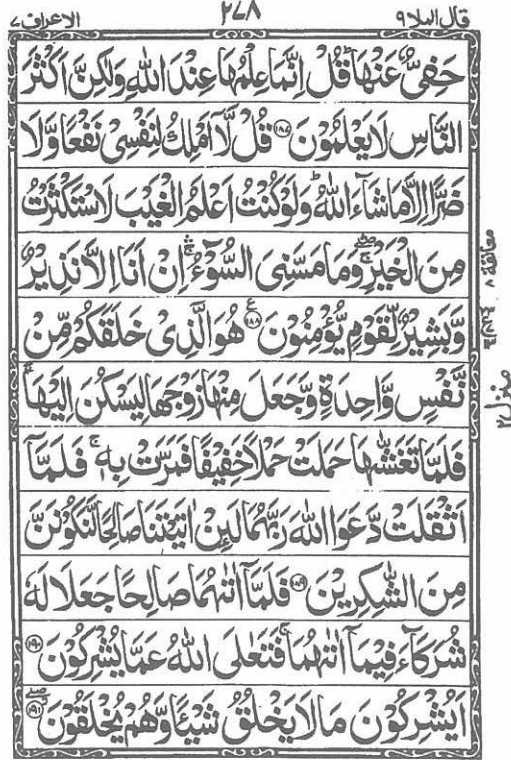 قال الملا ٩ ٢٧٨ الاعراف ٧
حَفِيٌّ عَنْهَا ؕ قُلْ اِنَّمَا عِلْمُهَا عِنْدَ اللّٰهِ وَلٰكِنَّ اَكْثَرَ
النَّاسِ لَا يَعْلَمُوْنَ ۝۱۸۷ قُلْ لَّاۤ اَمْلِكُ لِنَفْسِیْ نَفْعًا وَّلَا
ضَرًّا اِلَّا مَا شَآءَ اللّٰهُ ؕ وَلَوْ كُنْتُ اَعْلَمُ الْغَيْبَ لَاسْتَكْثَرْتُ
مِنَ الْخَيْرِ ۛۚ وَمَا مَسَّنِیَ السُّوْٓءُ ۛۚ اِنْ اَنَا اِلَّا نَذِيْرٌ
وَّبَشِيْرٌ لِّقَوْمٍ يُّؤْمِنُوْنَ ۝۱۸۸ هُوَ الَّذِیْ خَلَقَكُمْ مِّنْ
نَّفْسٍ وَّاحِدَةٍ وَّجَعَلَ مِنْهَا زَوْجَهَا لِيَسْكُنَ اِلَيْهَا ۚ
فَلَمَّا تَغَشّٰىهَا حَمَلَتْ حَمْلًا خَفِيْفًا فَمَرَّتْ بِهٖ ۚ فَلَمَّاۤ
اَثْقَلَتْ دَّعَوَا اللّٰهَ رَبَّهُمَا لَئِنْ اٰتَيْتَنَا صَالِحًا لَّنَكُوْنَنَّ
مِنَ الشّٰكِرِيْنَ ۝۱۸۹ فَلَمَّاۤ اٰتٰىهُمَا صَالِحًا جَعَلَا لَهٗ
شُرَكَآءَ فِيْمَاۤ اٰتٰىهُمَا ۚ فَتَعٰلَى اللّٰهُ عَمَّا يُشْرِكُوْنَ ۝۱۹۰
اَيُشْرِكُوْنَ مَا لَا يَخْلُقُ شَيْئًا وَّهُمْ يُخْلَقُوْنَ ۝۱۹۱
معانقة ٨
منزل ٢